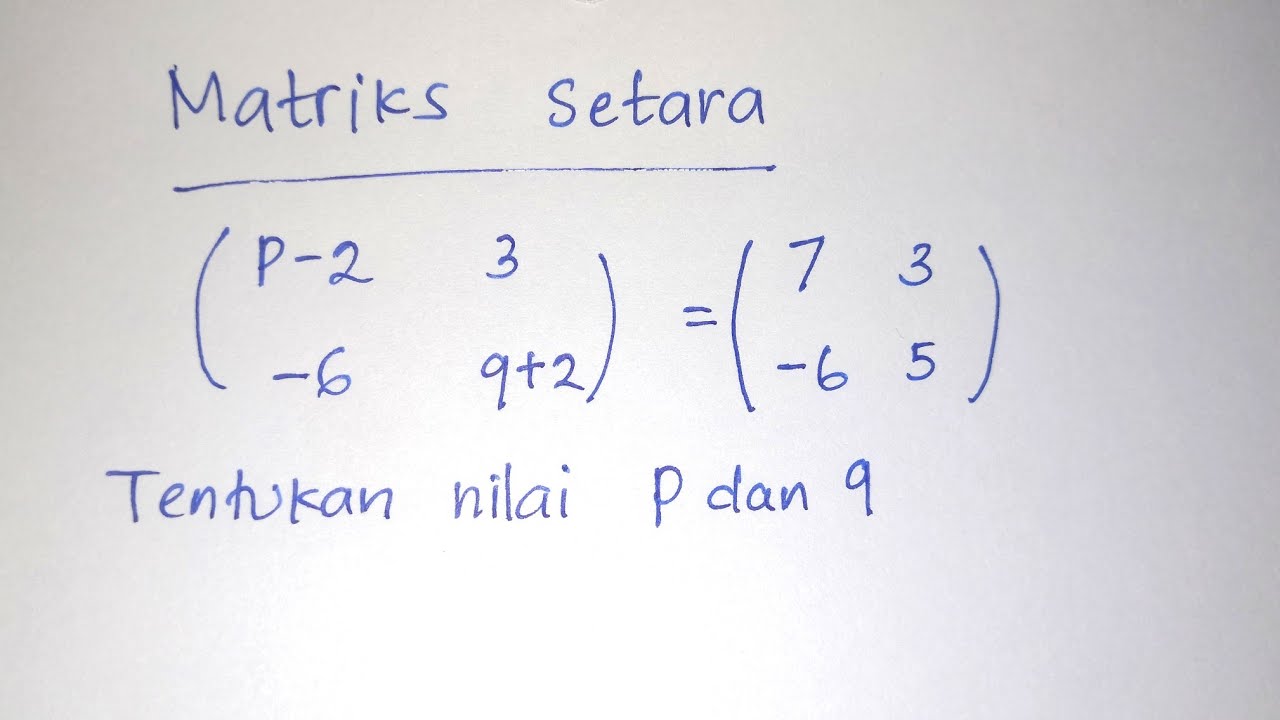 Matriks Setara
( p-2 3 ) = ( 7 3 )
( -6 q+2 ) ( -6 5 )
Tentukan nilai p dan q